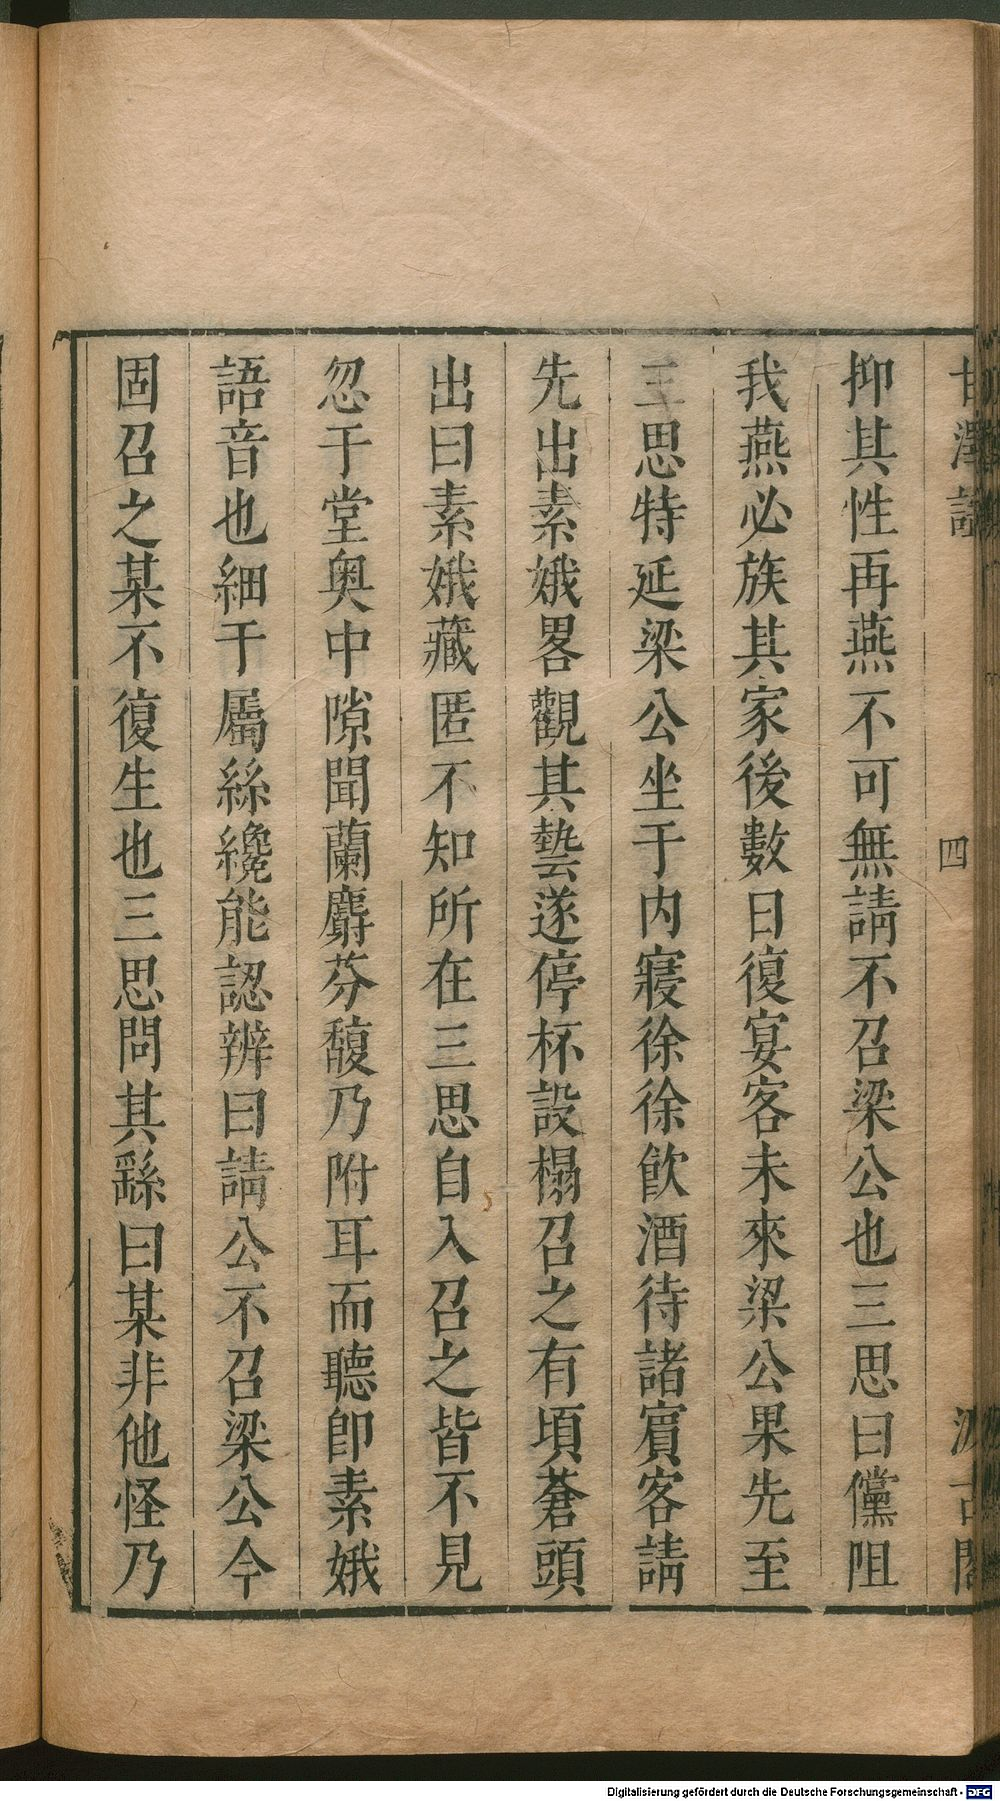 甘澤謠
四
汲古閣
抑其性再燕不可無請不召梁公也三思曰儻阻
我燕必族其家後數日復宴客未來梁公果先至
三思特延梁公坐于内寢徐徐飲酒待諸賔客請
先出素娥畧觀其埶遂停杯設榻召之有頃蒼頭
出曰素娥藏匿不知所在三思自入召之皆不見
忽于堂奥中隙聞蘭麝芬馥乃附耳而聽即素娥
語音也細于屬絲纔能認辨曰請公不召梁公今
固召之某不復生也三思問其繇曰某非他怪乃
Digitalisierung gefördert durch die Deutsche Forschungsgemeinschaft - DFG